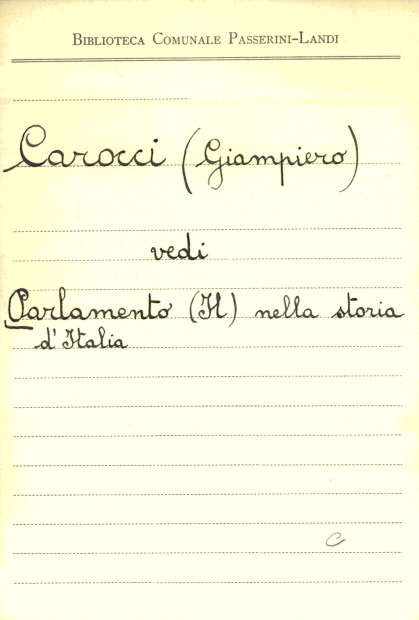 Biblioteca Comunale Passerini-Landi
Carocci (Giampiero)
vedi
Parlamento (Il) nella storia
d'Italia
C